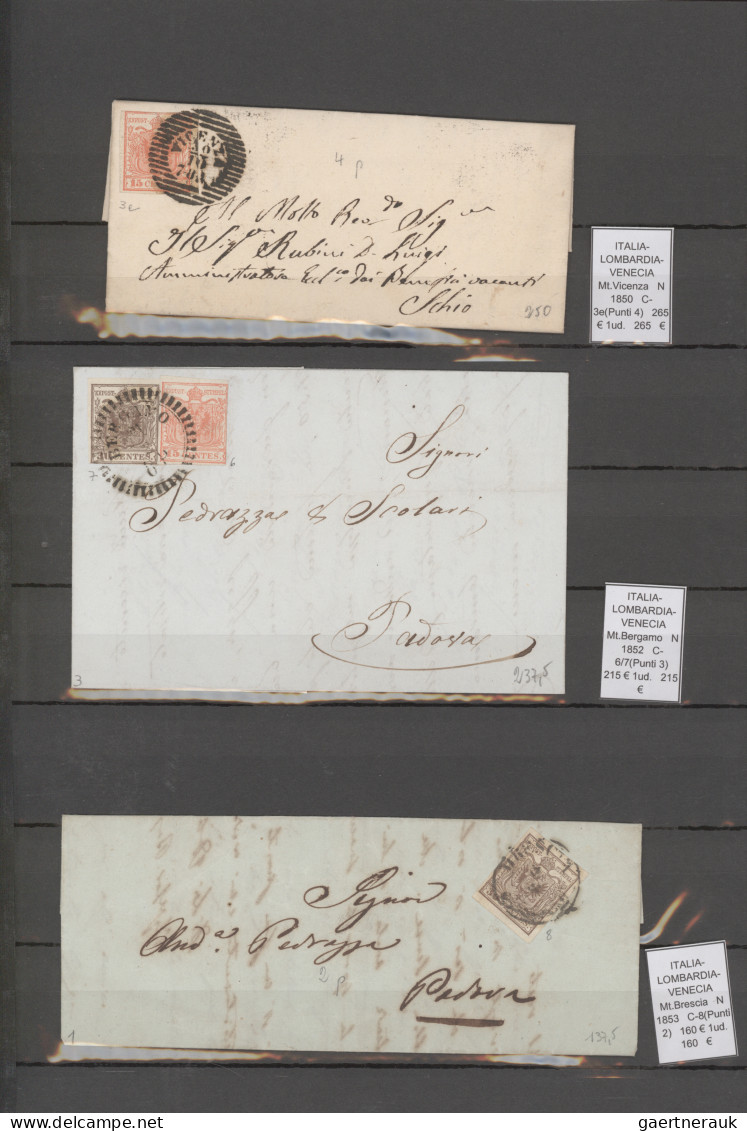 VICENZ
15 CE
4 p
3e
Il Molto Revdo Sigr
Il Sigr Rubini D. Luigi
Amministratore Eccl.co dei Benefici vacanti
Schio
250
ITALIA-
LOMBARDIA-
VENECIA
Mt.Vicenza N
1850 C-
3e(Punti 4) 265
€ 1ud. 265 €
BERGAMO
CENTES.
15 CENTES.
7
6
Signori
Pedrazza & Scolari
Padova
3
237,5
ITALIA-
LOMBARDIA-
VENECIA
Mt.Bergamo N
1852 C-
6/7(Punti 3)
215 € 1ud. 215
€
8
Signor
Anda. Pedrazza
2 p
Padova
1
137,5
ITALIA-
LOMBARDIA-
VENECIA
Mt.Brescia N
1853 C-8(Punti
2) 160 € 1ud.
160 €
gaertnerauk